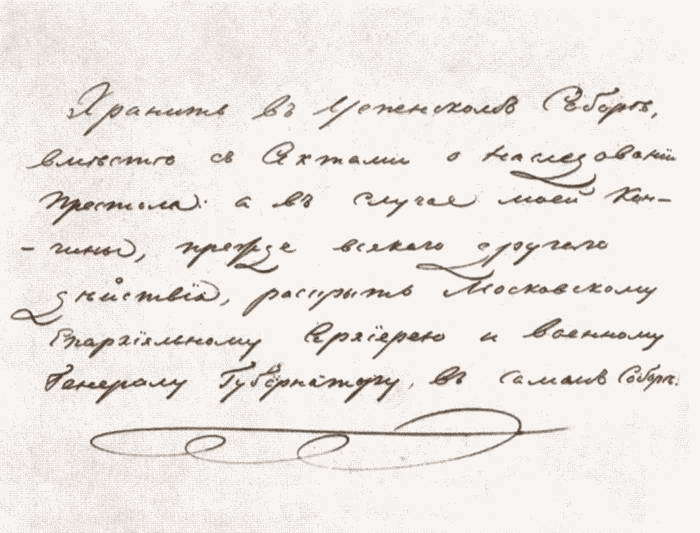 Хранить въ Успенскомъ Соборѣ,
вмѣстѣ съ Актами о наслѣдованіи
Престола: а въ случаѣ моей кон-
- чины, прежде всякаго другаго
дѣйствія, раскрыть Московскому
Епархіяльному Архіерею и Военному
Генералу Губернатору, въ самомъ Соборѣ.